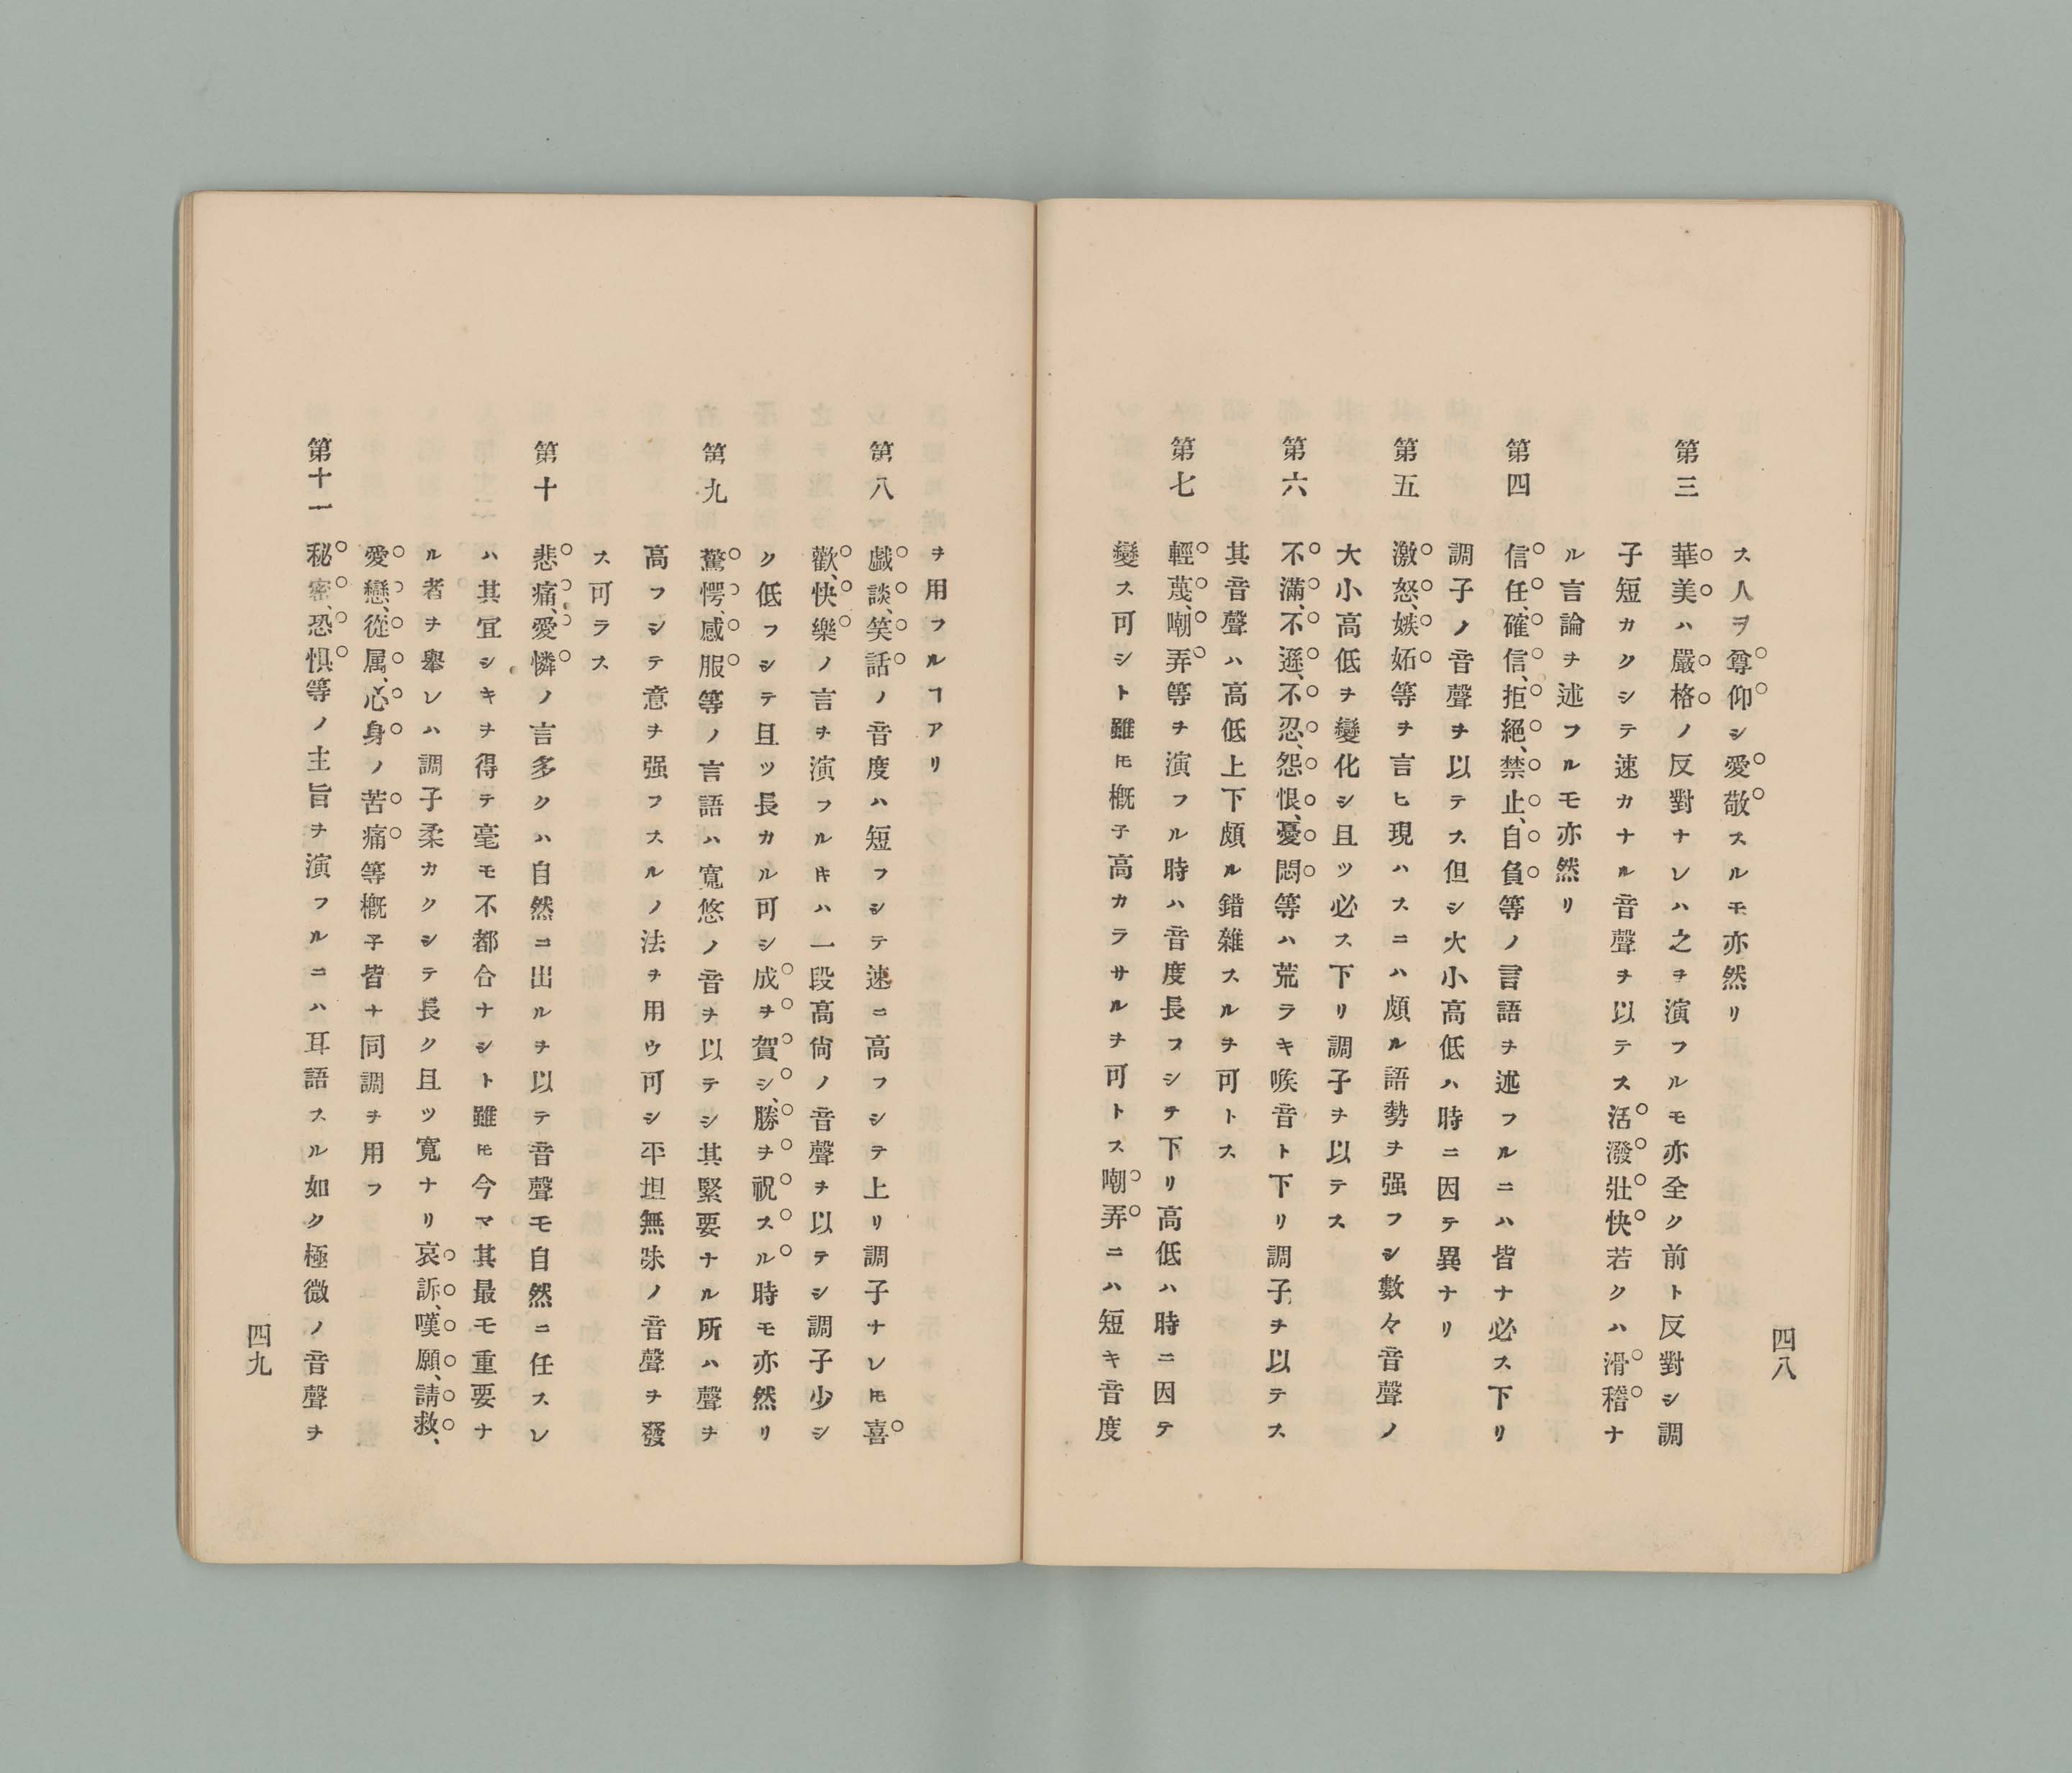 四八
ス人ヲ尊仰シ愛敬スルモ亦然リ
第三 華美ハ嚴格ノ反對ナレハ之ヲ演フルモ亦全ク前ト反對シ調
子短カクシテ速カナル音聲ヲ以テス活潑壯快若クハ滑稽ナ
ル言論ヲ述フルモ亦然リ
第四 信任、確信、拒絕、禁止、自負等ノ言語ヲ述フルニハ皆ナ必ス下リ
調子ノ音聲ヲ以テス但シ大小高低ハ時ニ因テ異ナリ
第五 激怒、嫉妬等ヲ言ヒ現ハスニハ頗ル語勢ヲ强フシ數々音聲ノ
大小高低ヲ變化シ且ツ必ス下リ調子ヲ以テス
第六 不滿、不遜、不忍、怨恨、憂悶等ハ荒ラキ喉音ト下リ調子ヲ以テス
其音聲ハ高低上下頗ル錯雜スルヲ可トス
第七 輕蔑、嘲弄等ヲ演フル時ハ音度長フシテ下リ高低ハ時ニ因テ
變ス可シト雖𪜈概子高カラサルヲ可トス嘲弄ニハ短キ音度
ヲ用フルヿアリ
第八 戲談、笑話ノ音度ハ短フシテ速ニ高フシテ上リ調子ナレ𪜈喜
歡、快樂ノ言ヲ演フルキハ一段高尙ノ音聲ヲ以テシ調子少シ
ク低フシテ且ツ長カル可シ成ヲ賀シ、勝ヲ祝スル時モ亦然リ
第九 驚愕、感服等ノ言語ハ寬悠ノ音ヲ以テシ其緊要ナル所ハ聲ヲ
高フシテ意ヲ强フスルノ法ヲ用ウ可シ平坦無味ノ音聲ヲ發
ス可ラス
第十 悲痛、愛憐ノ言多クハ自然ニ出ルヲ以テ音聲モ自然ニ任スレ
ハ其宜シキヲ得テ毫モ不都合ナシト雖𪜈今マ其最モ重要ナ
ル者ヲ擧レハ調子柔カクシテ長ク且ツ寬ナリ哀訴、嘆願、請救、
愛戀、從属、心身ノ苦痛等概子皆ナ同調ヲ用フ
第十一 秘密、恐惧等ノ主旨ヲ演フルニハ耳語スル如ク極微ノ音聲ヲ
四九